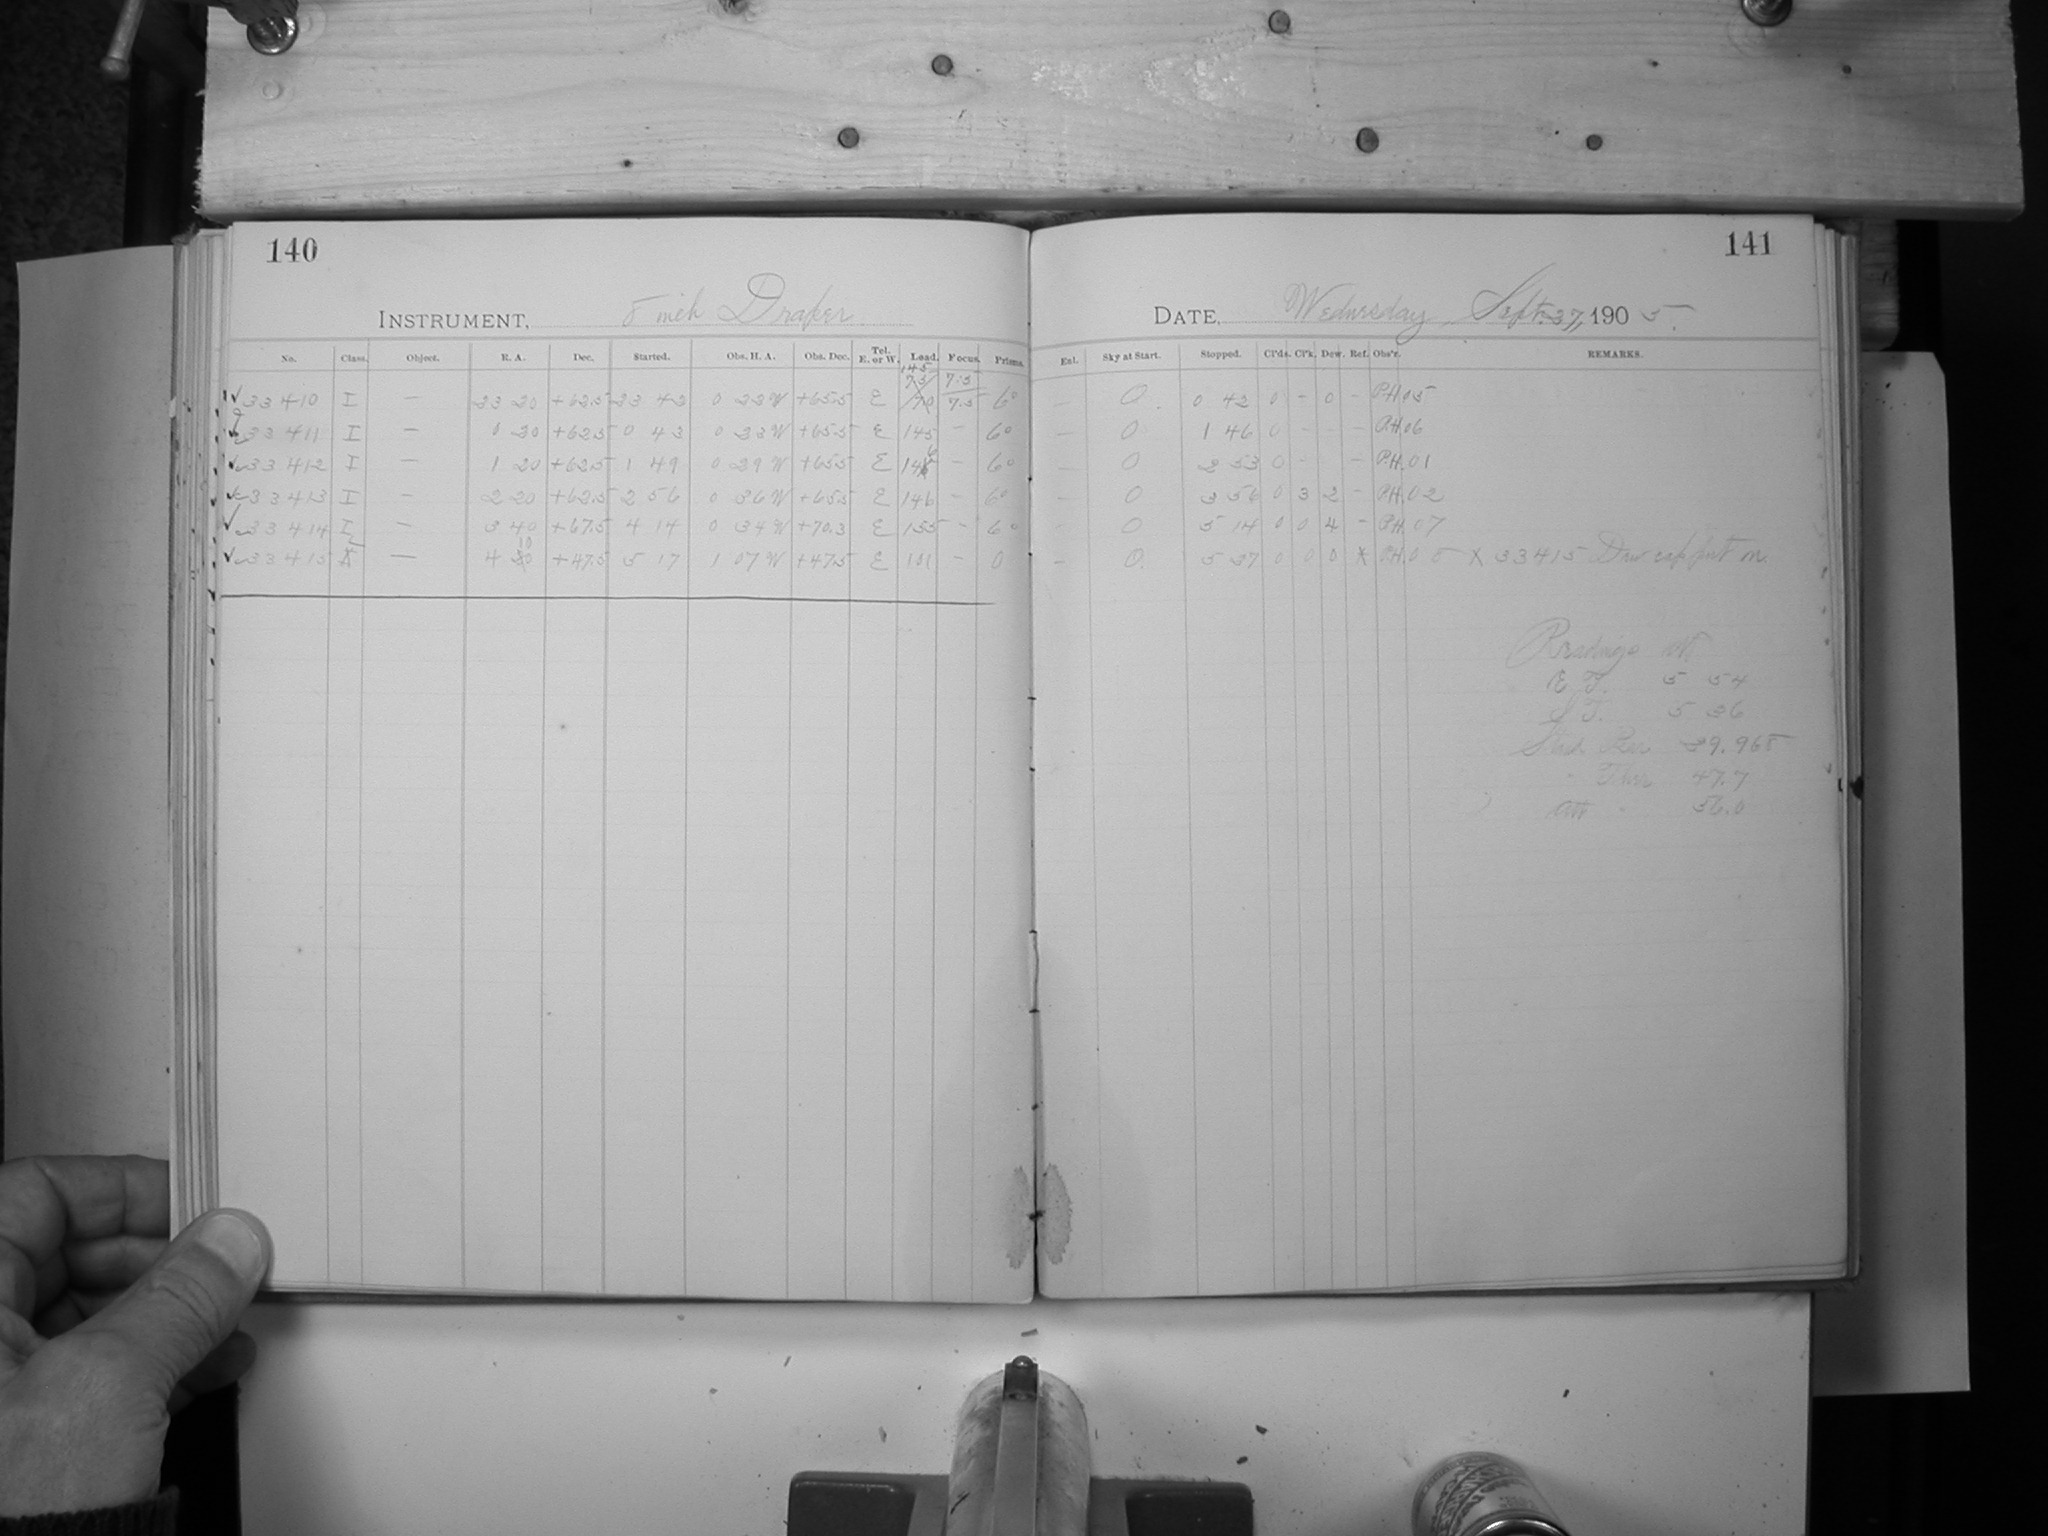 140
INSTRUMENT, 8 inch Draper
No. Class. Object. R. A. Dec. Started. Obs. H. A. Obs. Dec. Tel. E. or W. Load. Focus. Prisms.
145
7.5 7.5
✓33410 I — 23 20 +62.5 23 42 0 22 W +65.5 E 70 7.5 6°
33411 I — 0 20 +62.5 0 43 0 23 W +65.5 E 145 — 6°
✓33412 I — 1 20 +62.5 1 49 0 29 W +65.5 E 146 — 6°
✓33413 I — 2 20 +62.5 2 56 0 36 W +65.5 E 146 — 6°
✓33414 I — 3 40 +67.5 4 14 0 34 W +70.3 E 155 — 6°
✓33415 — 4 10 +47.5 5 17 1 07 W +47.5 E 101 — 0
141
DATE, Wednesday, Sept. 27, 1905.
Enl. Sky at Start. Stopped. Cl'ds. Cl'k. Dew. Ref. Obs'r. REMARKS.
— 0 0 42 0 - 0 - P.H.05
— 0 1 46 0 - - - P.H.06
— 0 2 53 0 - - P.H.01
— 0 3 56 0 3 2 - P.H.02
0 5 14 0 0 4 - P.H.07
— 0 5 37 0 0 0 X P.H.08 X 33415 Dew cap put on.
Readings at
E. T. 5 54
S. T. 5 36
Bar 29.968
" Ther 47.7
Att " 56.0